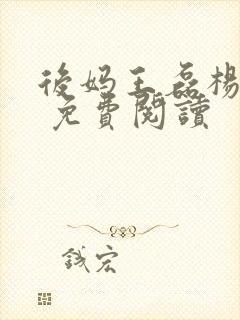 後妈王磊楊
免費閱讀
钱宏